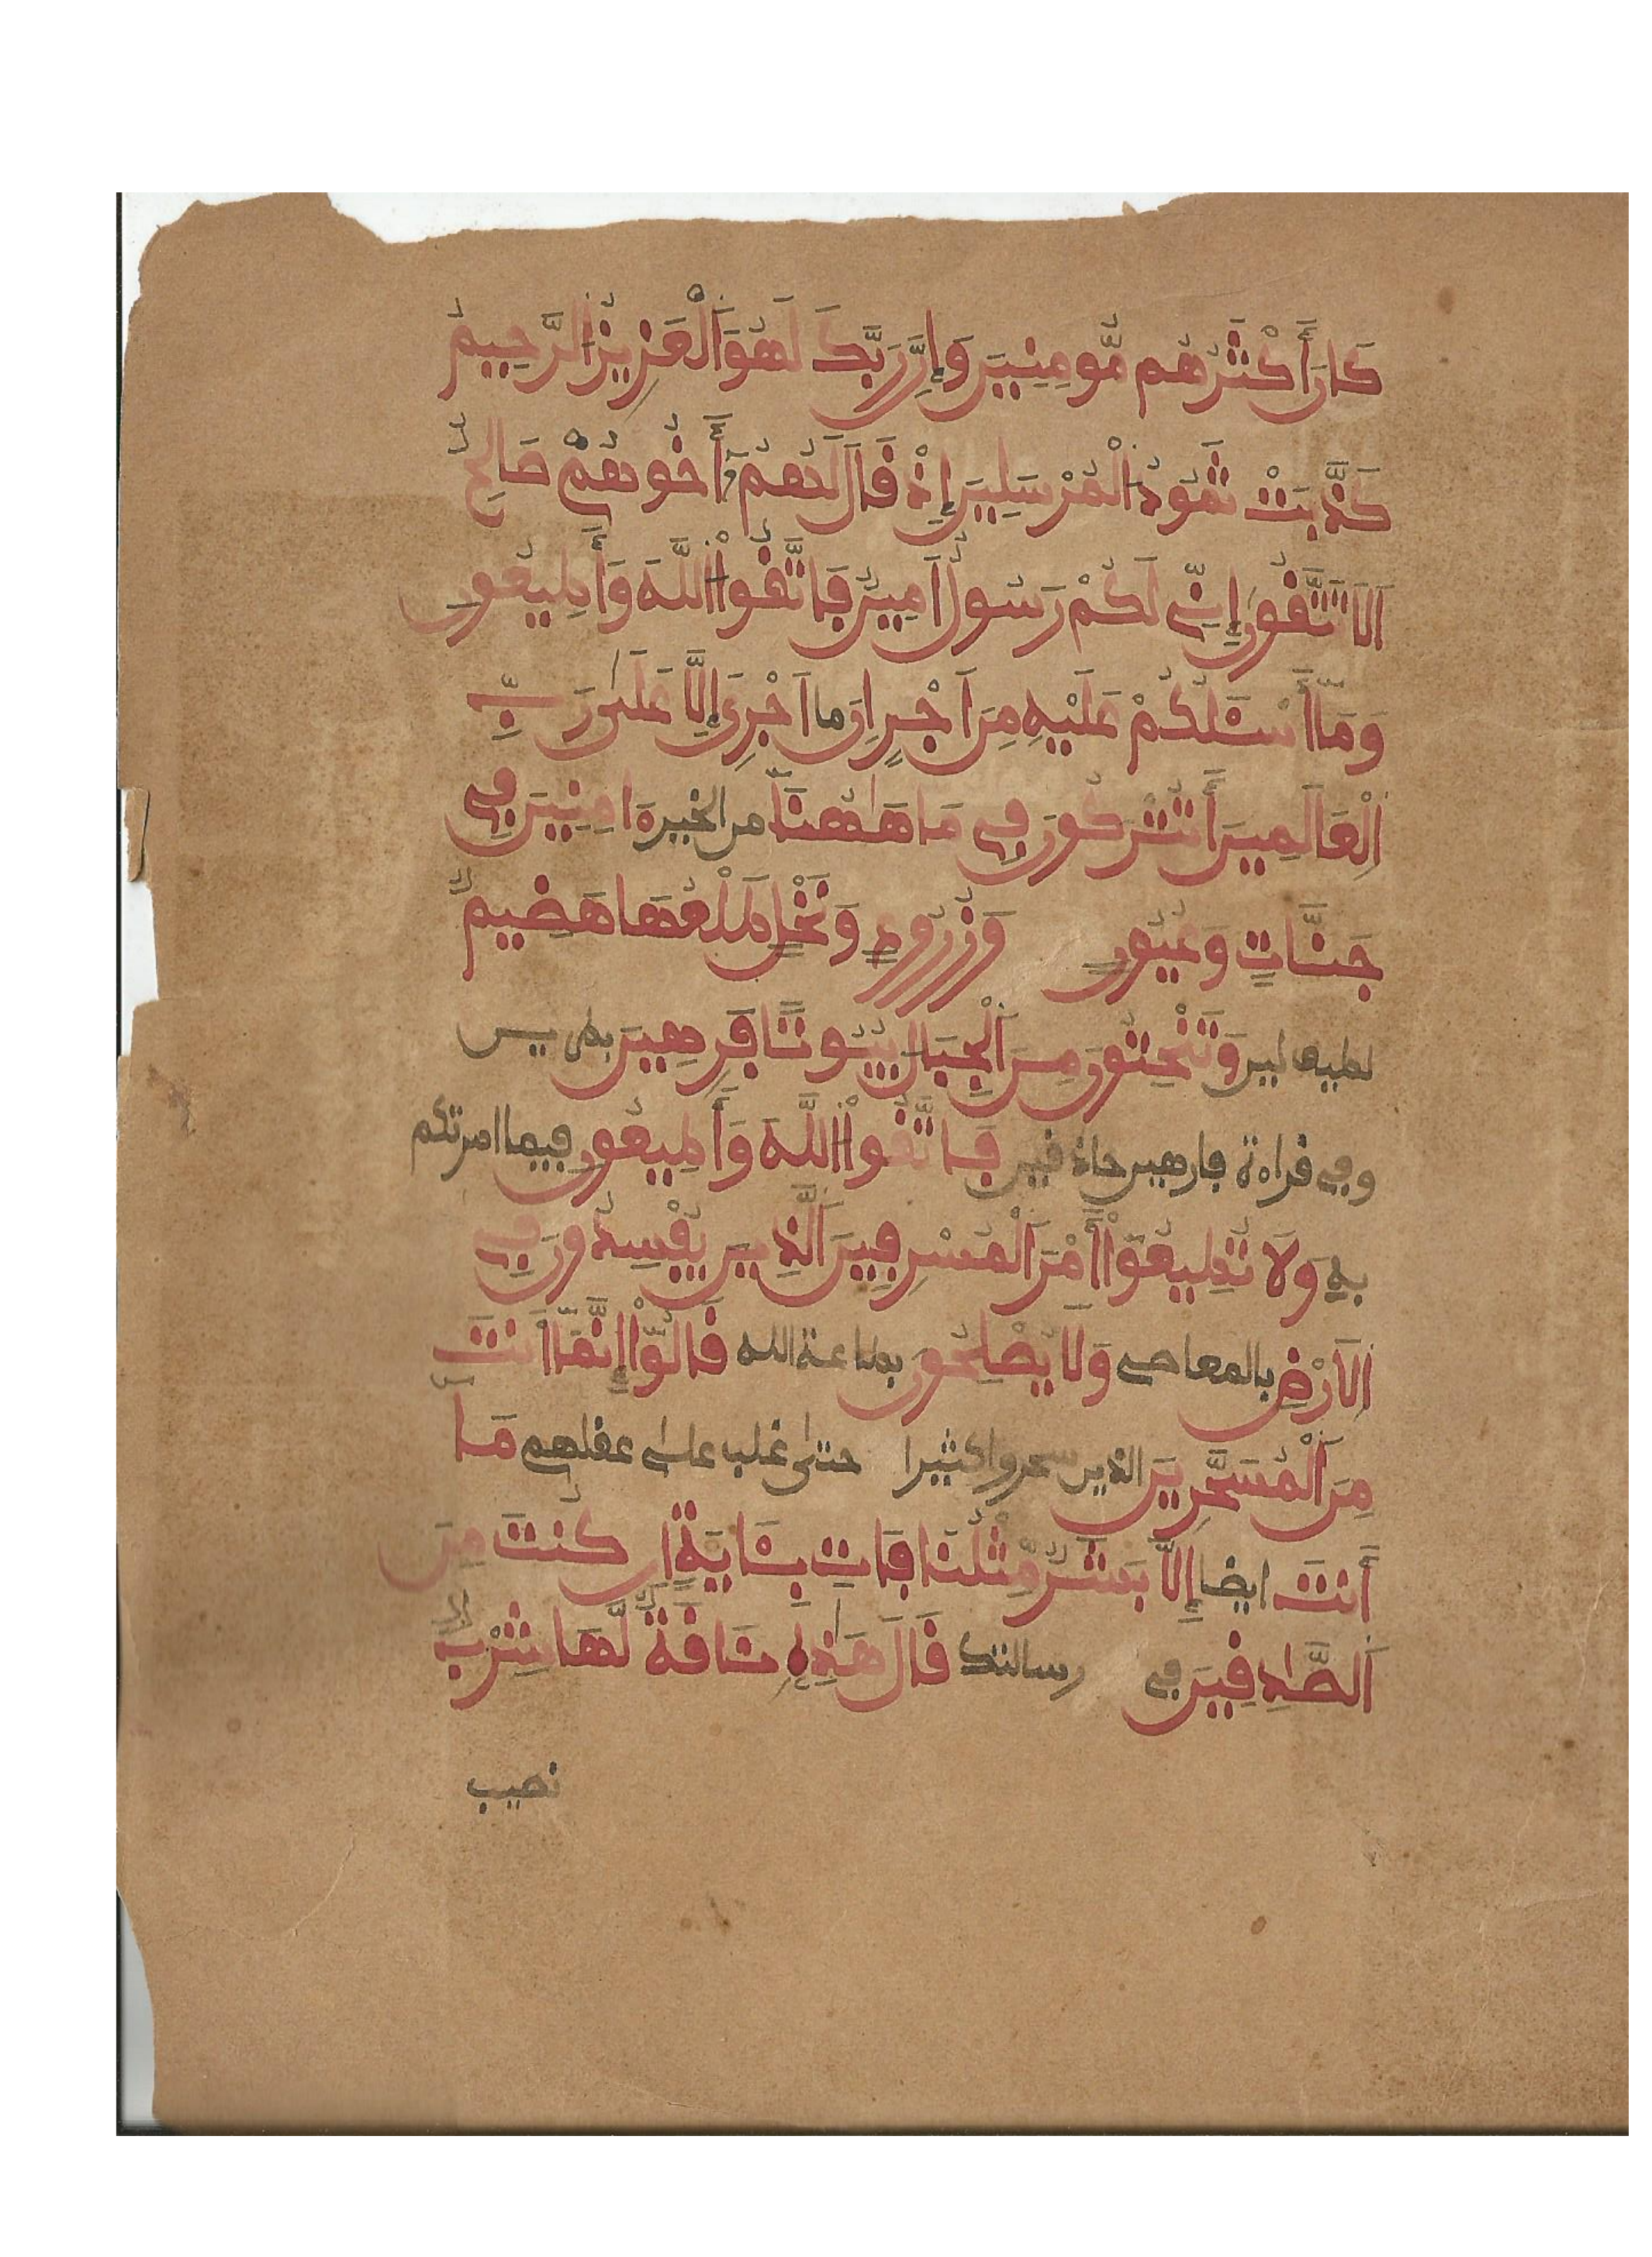 كَانَ أَكْثَرُهُم مُّومِنِينَ وَإِنَّ رَبَّكَ لَهُوَ اَلْعَزِيزُ اُلرَّحِيمُ
كَذَّبَتْ ثَمُودُ اُلْمُرْسَلِينَ إِذْ قَالَ لَهُمُۥٓ أَخُوهُمْ صَالِحٌ
اَلَا تَتَّقُونَ إِنِّي لَكُمْ رَسُولٌ اَمِينٌ فَاتَّقُواْ اُللَّهَ وَأَطِيعُونِ
وَمَآ أَسْـَٔلُكُمْ عَلَيْهِ مِنَ اَجْرٍ اِنَ اَجْرِيَ إِلَّا عَلَىٰ رَبِّ
اِلْعَالَمِينَ أَتُتْرَكُونَ فِي مَا هَاهُنَآ من الخيرة امِنِينَ فِي
جَنَّاتٍ وَعُيُونٍ وَزُرُوعٍ وَنَخْلٍ طَلْعُهَا هَضِيمٌ
لطيف لين وَتَنْحِتُونَ مِنَ اَلْجِبَالِ بُيُوتاً فَرِهِينَ بطرين
وفي قراءة فارهين حاذقين فَاتَّقُواْ اُللَّهَ وَأَطِيعُونِ فيما امرتكم
به وَلَا تُطِيعُوٓاْ أَمْرَ اَلْمُسْرِفِينَ اَلَّذِينَ يُفْسِدُونَ فِي
اِلَارْضِ بالمعاصي وَلَا يُصْلِحُونَ بطاعة الله قَالُوٓاْ إِنَّمَآ أَنتَ
مِنَ اَلْمُسَحَّرِينَ الذين سحروا كثيرا حتى غلب على عقلهم مَآ
أَنتَ ايضا إِلَّا بَشَرٌ مِّثْلُنَا فَاتِ بِـَٔايَةٍ اِن كُنتَ مِنَ
اَلصَّادِقِينَ في رسالتك قَالَ هَٰذِهِۦ نَاقَةٌ لَّهَا شِرْبٌ
نصيب